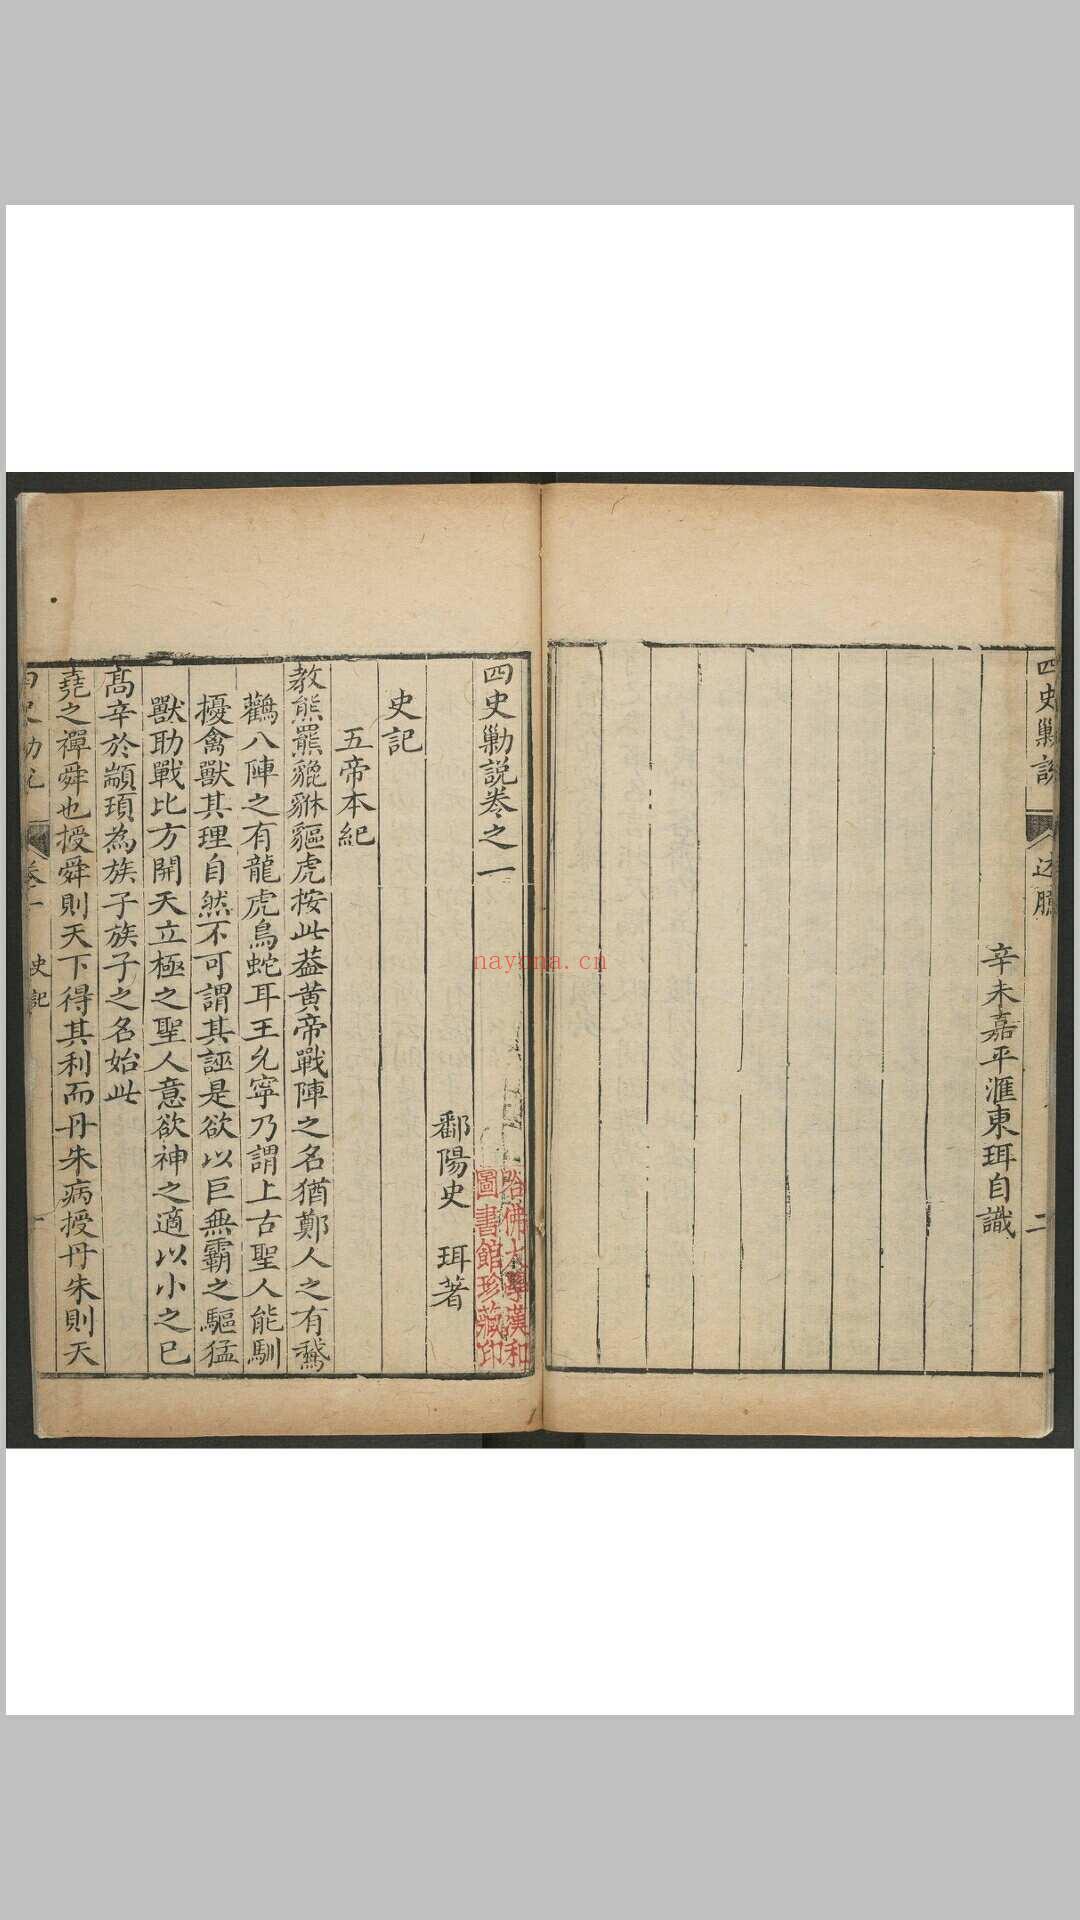 四史勦說
辛未嘉平滙東珥自識
二
四史勦說卷之一
哈佛大學漢和
圖書館珍藏印
鄱陽史 珥著
史記
五帝本紀
教熊羆貔貅貙虎按此葢黄帝戰陣之名猶鄭人之有鵞
鸛八陣之有龍虎鳥蛇耳王允寧乃謂上古聖人能馴
擾禽獸其理自然不可謂其誣是欲以巨無霸之驅猛
獸助戰比方開天立極之聖人意欲神之適以小之已
高辛於顓頊為族子族子之名始此
堯之禪舜也授舜則天下得其利而丹朱病授丹朱則天
卷一
史記
一
nayona.cn